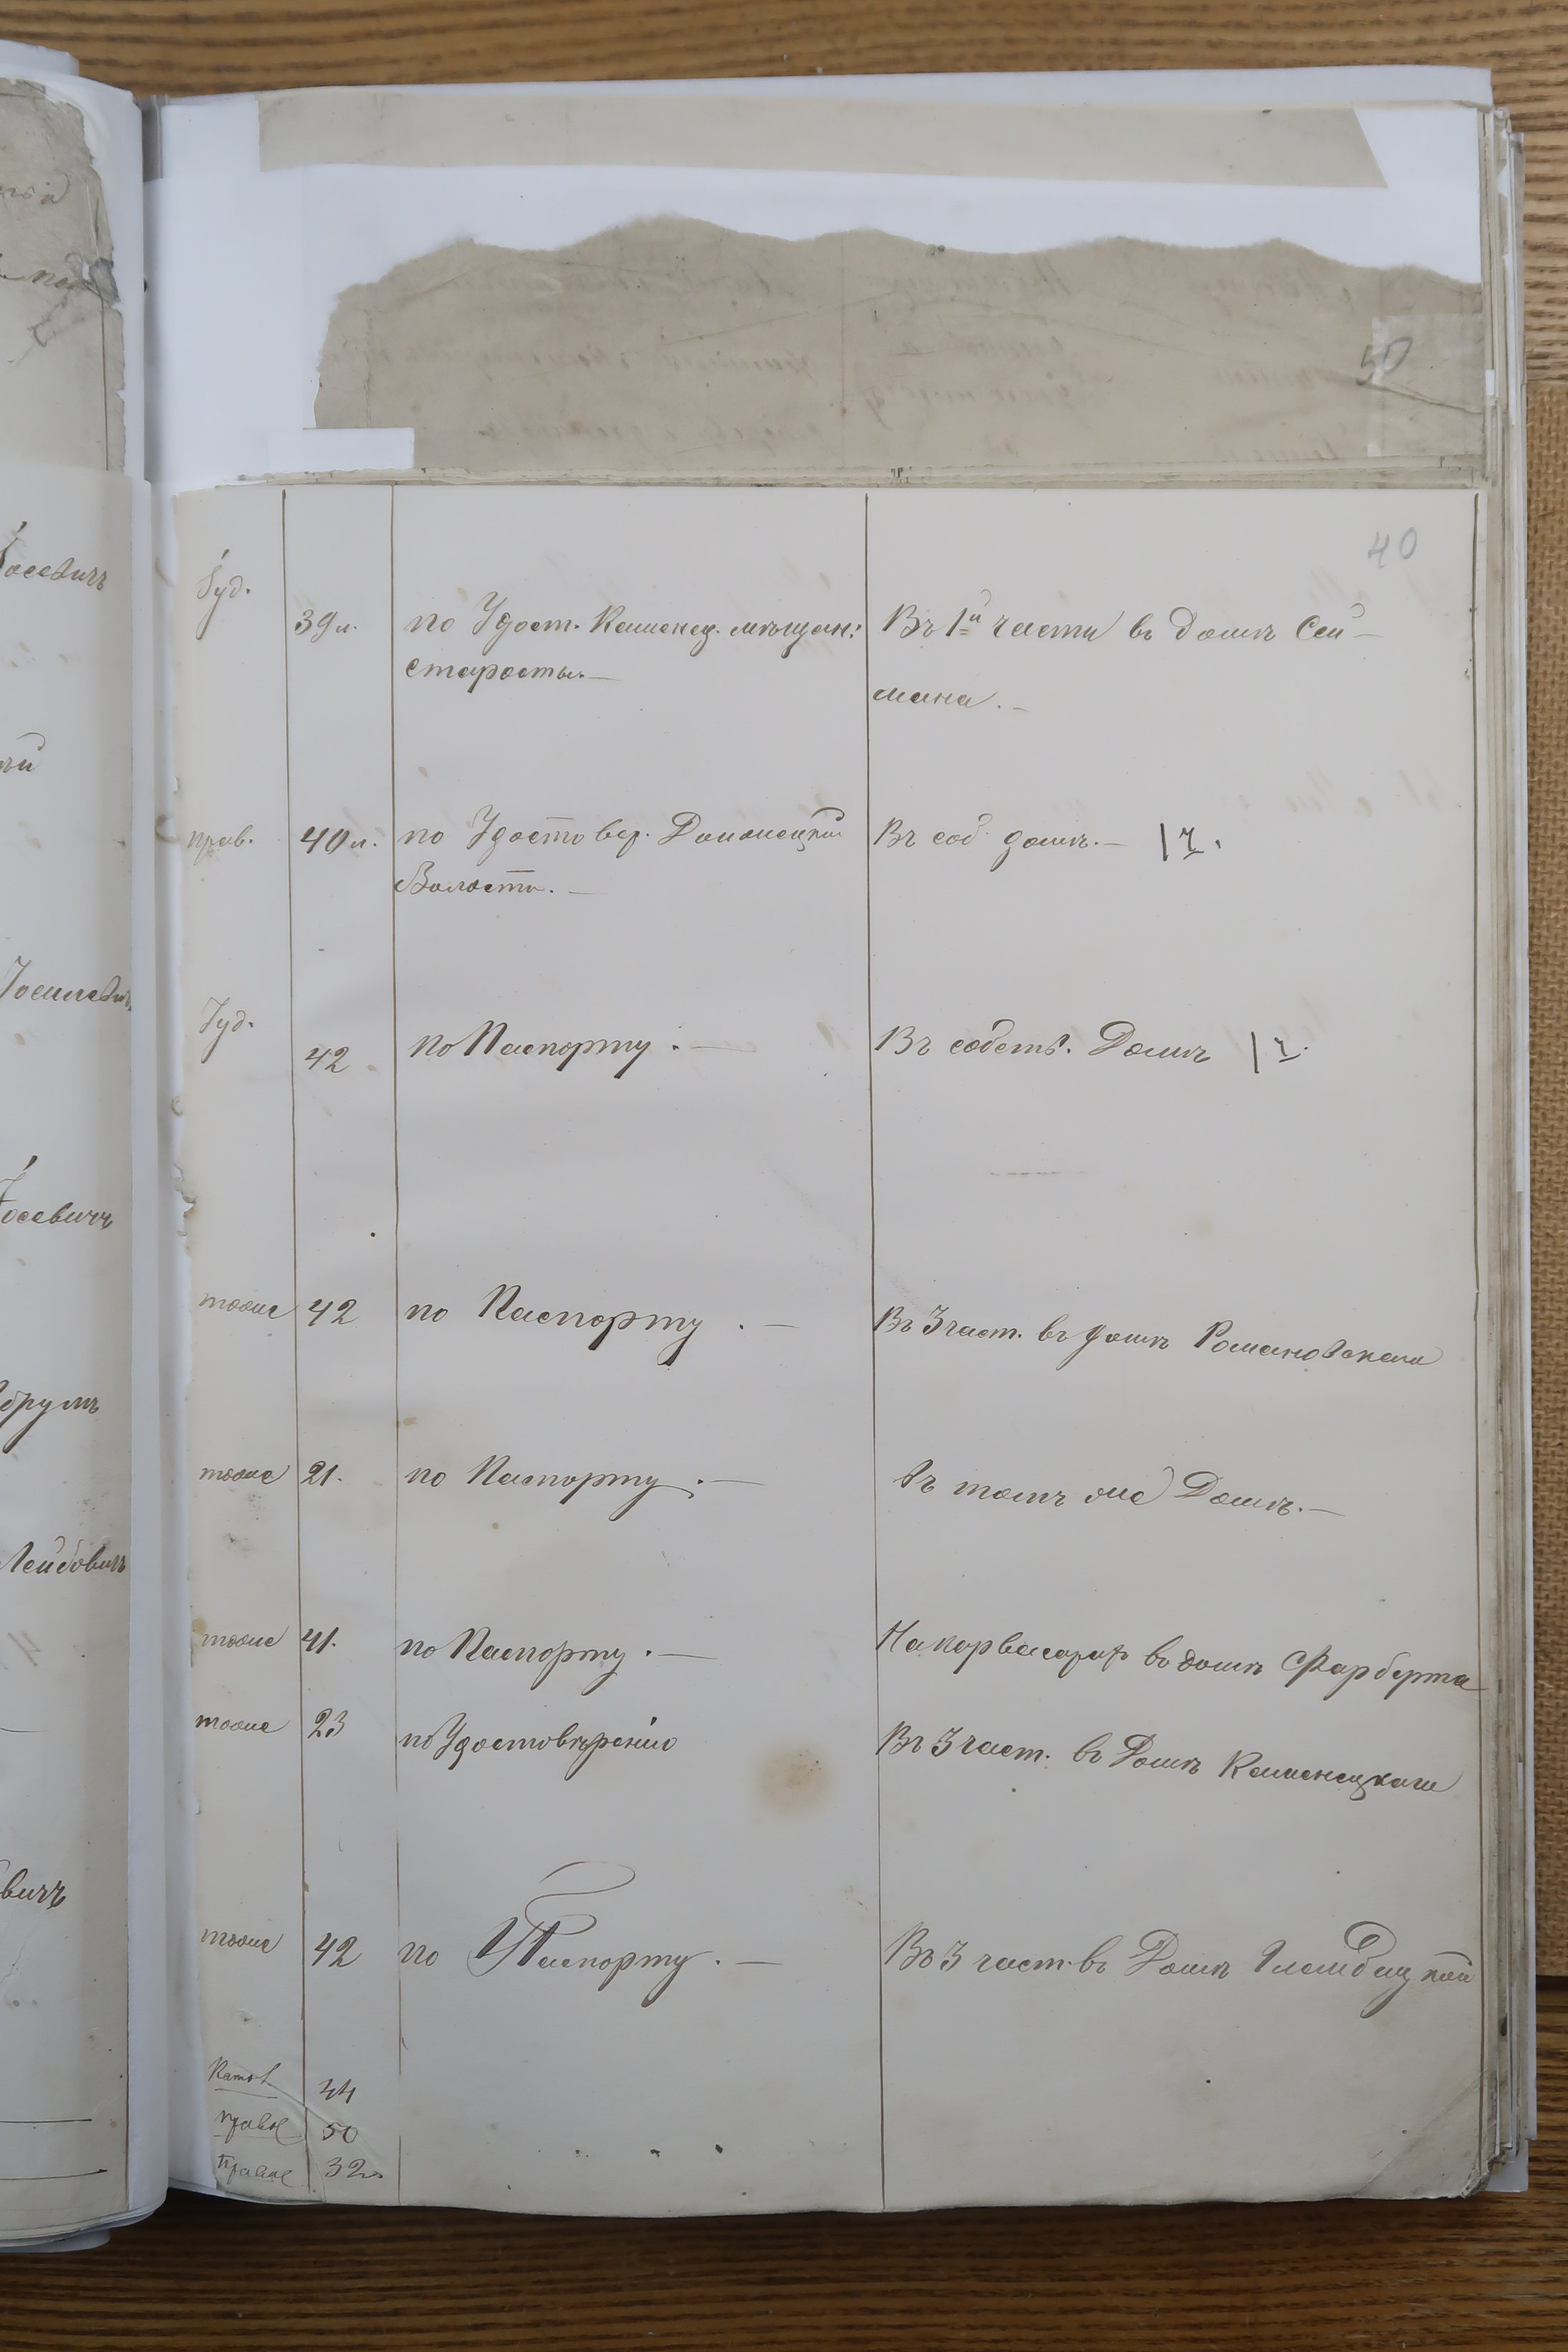 50
40
Іуд.
39 л. по Удост. Каменец. мѣщан: Въ 1й части въ домѣ Сей-
старосты.— мана.—
прав. 40 л. по Удостовер. Въ соб. домѣ.— 1 ч.
Волости.—
Іуд.
42 по Паспорту.— Въ собств. Домѣ 1 ч.
тоже 42 по Паспорту.— Въ 3 част. въ домѣ Романовскаго
тоже 21. по Паспорту.— въ томъ же Домѣ.—
тоже 41. по Паспорту.— На Карвасарахъ въ домѣ Фарберта
тоже 23 по Удостовѣренію Въ 3 част. въ Домѣ Каменецкаго
тоже 42 по Паспорту.— Въ 3 част. въ Домѣ
Катол 44
правос 50
Правос 32
Іосевичъ
Іосевичъ
Лейбовичъ
вичъ